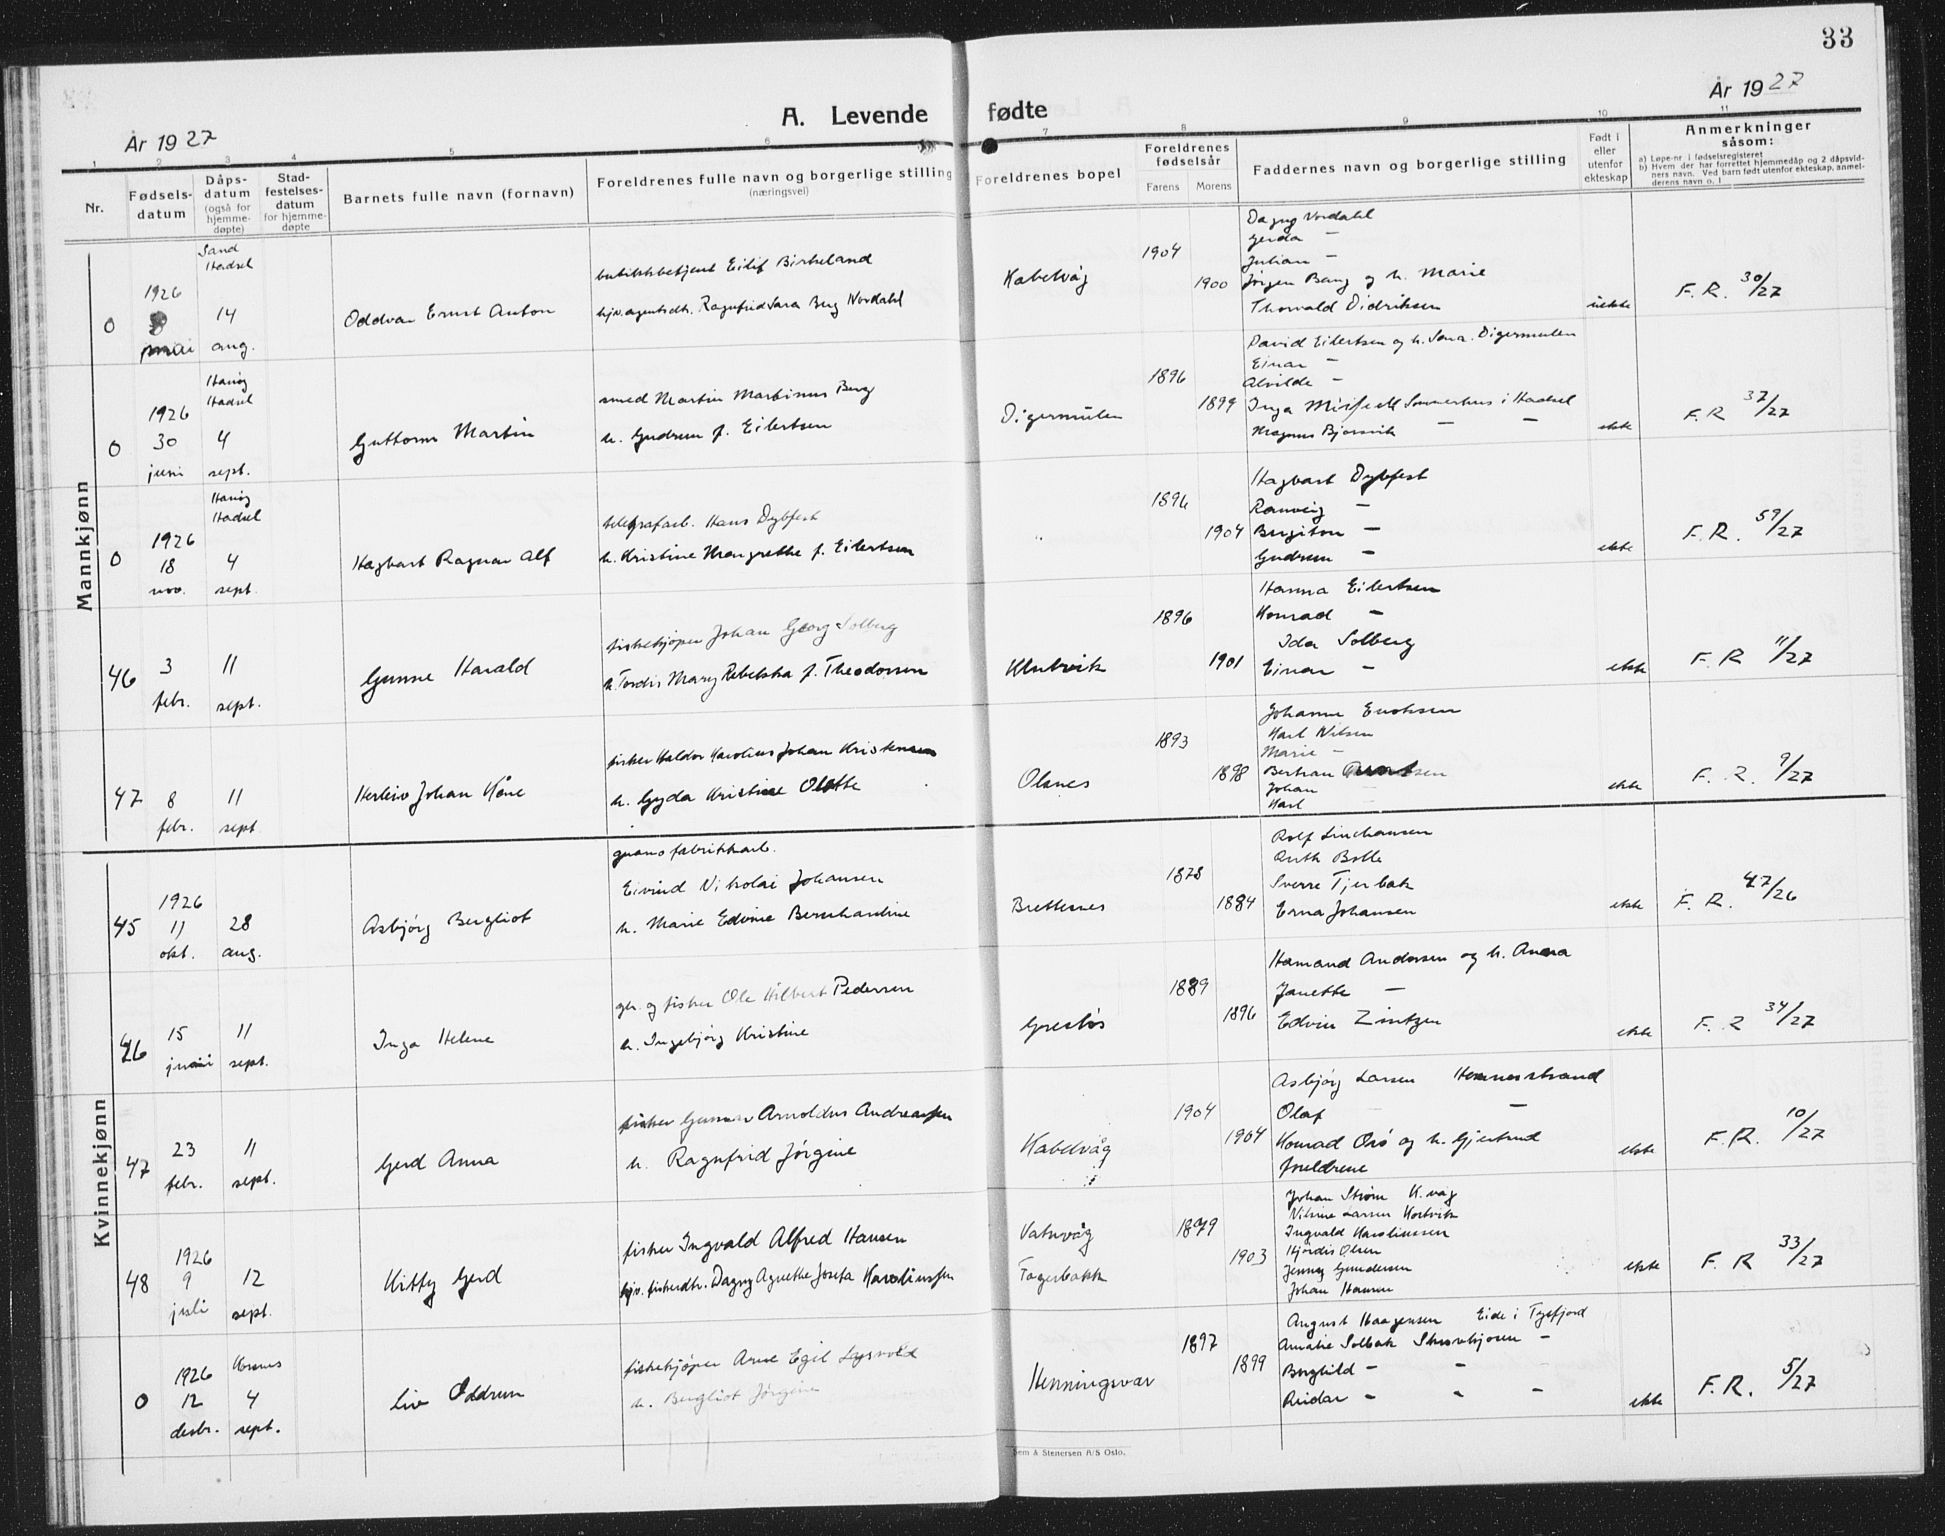 33
År 1927
A. Levende fødte
År 1927
1 2 3 4 5 6 7 8 9 10 11
Nr.
Fødsels-
datum
Dåps-
datum
(også for
hjemme-
døpte)
Stad-
festelses-
datum
for hjemme-
døpte
Barnets fulle navn (fornavn)
Foreldrenes fulle navn og borgerlige stilling
(næringsvei)
Foreldrenes bopel
Foreldrenes
fødselsår
Farens
Morens
Faddernes navn og borgerlige stilling
Født i
eller
utenfor
ekteskap
Anmerkninger
såsom:
a) Løpe-nr i fødselsregisteret
b) Hvem der har forrettet hjemmedåp og 2 dåpsvid-
ners navn. Ved barn født utenfor ekteskap, anmel-
derens navn o. l
Mannkjønn
Sand
Hadsel
0
1926
mai
14
aug.
Oddvar Ernst Anton
butikkbetjent Eilif Birkeland
hjv. agentsdtr. Ragnfrid Sara Berg Nordahl
Kabelvåg
1904
1900
Dagny Nordahl
Gerda —
Julian —
Jörgen Berg og h. Marie
Thorvald Didriksen
uekte
F. R. 30/27
Hanøy
Hadsel
0
1926
30
juni
4
sept.
Guttorm Martin
smed Martin Martinus Berg
h. Gudrun f. Eilertsen
Digermulen
1896
1899
David Eilertsen og h. Sara. Digermulen
Einar —
Alvilde —
Inga
i Hadsel
Magnus Bjørsvik — —
ekte
F. R 37/27
Hanøy
Hadsel
0
1926
18
nov.
4
sept.
Hagbart Ragnar Alf
telegrafarb. Hans Dybfest
h. Kristine Margrethe f. Eilertsen
1896
1904
Hagbart Dybfest
Ranveig —
Birgiton —
Gudrun —
ekte
F. R. 59/27
46
3
febr.
11
sept.
Gunne Harald
fiskekjøper Johan Georg Solberg
h. Tordis Mary Rebekka f. Theodorsen
Klubvik
1896
1901
Hanna Eilertsen
Konrad —
Ida Solberg
Einar —
ekte
F. R 11/27
47
8
febr.
11
sept
Herleiv Johan Kåre
fisker Haldor Karolius Johan Kristensen
h. Gyda Kristine Olette
Olsnes
1893
1898
Johanne Enoksen
Karl Nilsen
Marie —
Bertran
Johan —
Karl —
ekte
F. R. 9/27
Kvinnekjønn
45
1926
11
okt.
28
aug.
Asbjørg Bergliot
guanofabrikkarb.
Eivind Nikolai Johansen
h. Marie Edvine Bernhardine
Brettesnes
1878
1884
Rolf Linchausen
Ruth Bolle
Sverre Tjerbak
Erna Johansen
ekte
F. R. 47/26
46
15
juni
11
sept.
Inga Helene
gbr. og fisker Ole Hilbert Pedersen
h. Ingebjørg Kristine
1889
1896
Hamand Andersen og h. Anna
Janette —
Edvin Zintzen
ekte
F. R 34/27
47
23
febr.
11
sept.
Gerd Anna
fisker Gunnar Arnoldus Andreassen
h. Ragnfrid Jörgine
Kabelvåg
1904
1904
Asbjørg Larsen Hennesstrand
Olaf — —
Konrad Orö og h. Gjertrud
foreldrene
ekte
F. R. 10/27
48
1926
9
juli
12
sept.
Kitty Gerd
fisker Ingvald Alfred Hansen
hjv. fiskerdtr. Dagny Agnethe Josefa Karoliussen
Vatnvåg
Fagerbakk
1879
1903
Johan Strøm K.våg
Nilsine Larsen Hortvik
Ingvald Karoliussen
Hjördis Olsen
Jenny Gundersen
Johan Hansen
ekte
F. R 33/27
Kornes
0
1926
12
desbr.
4
sept.
Liv Oddrun
fiskekjøper Arne Egil Lysvold
h. Bergliot Jørgine
Henningsvær
1897
1899
August Haagensen Eide i Tysfjord
Amalie Solbak —
Borghild — —
Reidar — — —
ekte
F. R. 5/27
Sem & Stenersen A/S Oslo.